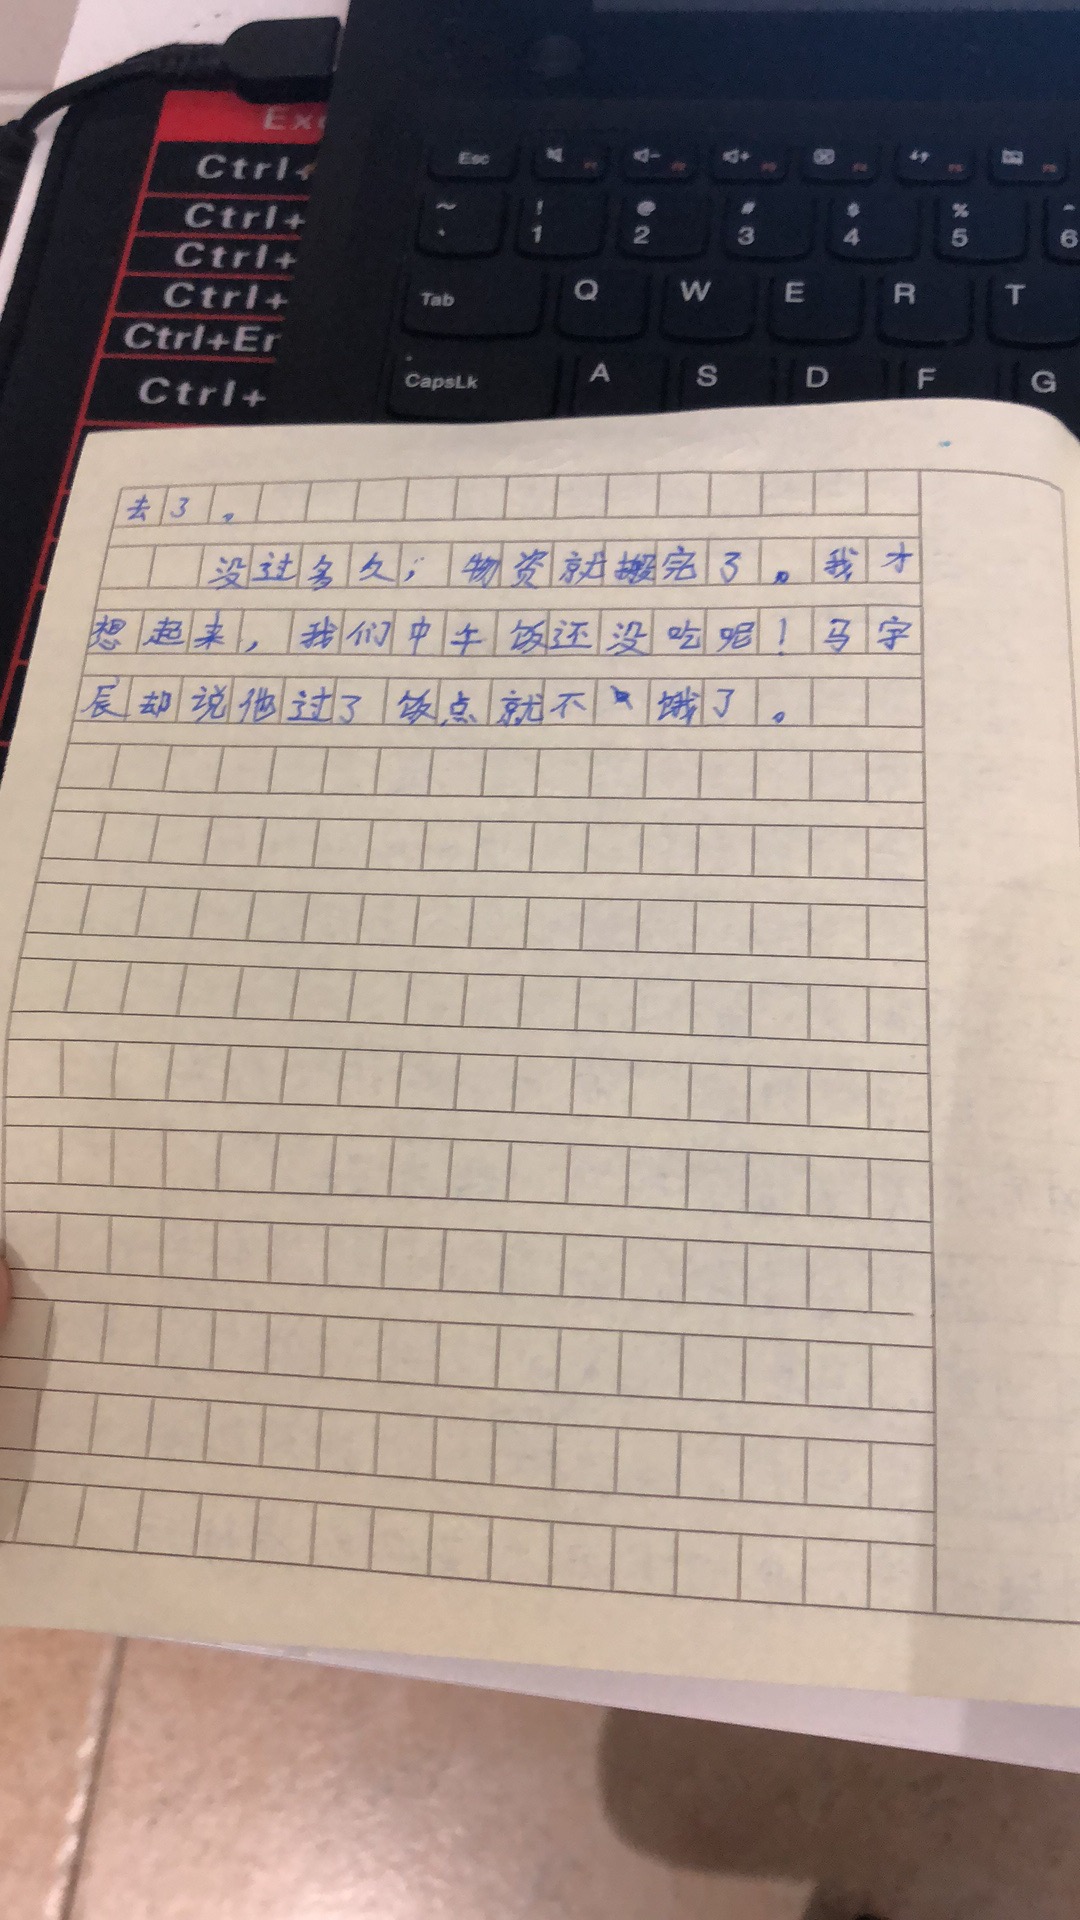 Exc
Ctrl+
Ctrl+
Ctrl+
Ctrl+
Ctrl+Er
Ctrl+
Esc
~ ! 1 @ 2 # 3 $ 4 % 5 ^ 6
Tab Q W E R T
CapsLk A S D F G
去了。
没过多久，物资就搬完了。我才
想起来，我们中午饭还没吃呢！马宇
辰却说他过了饭点就不饿了。